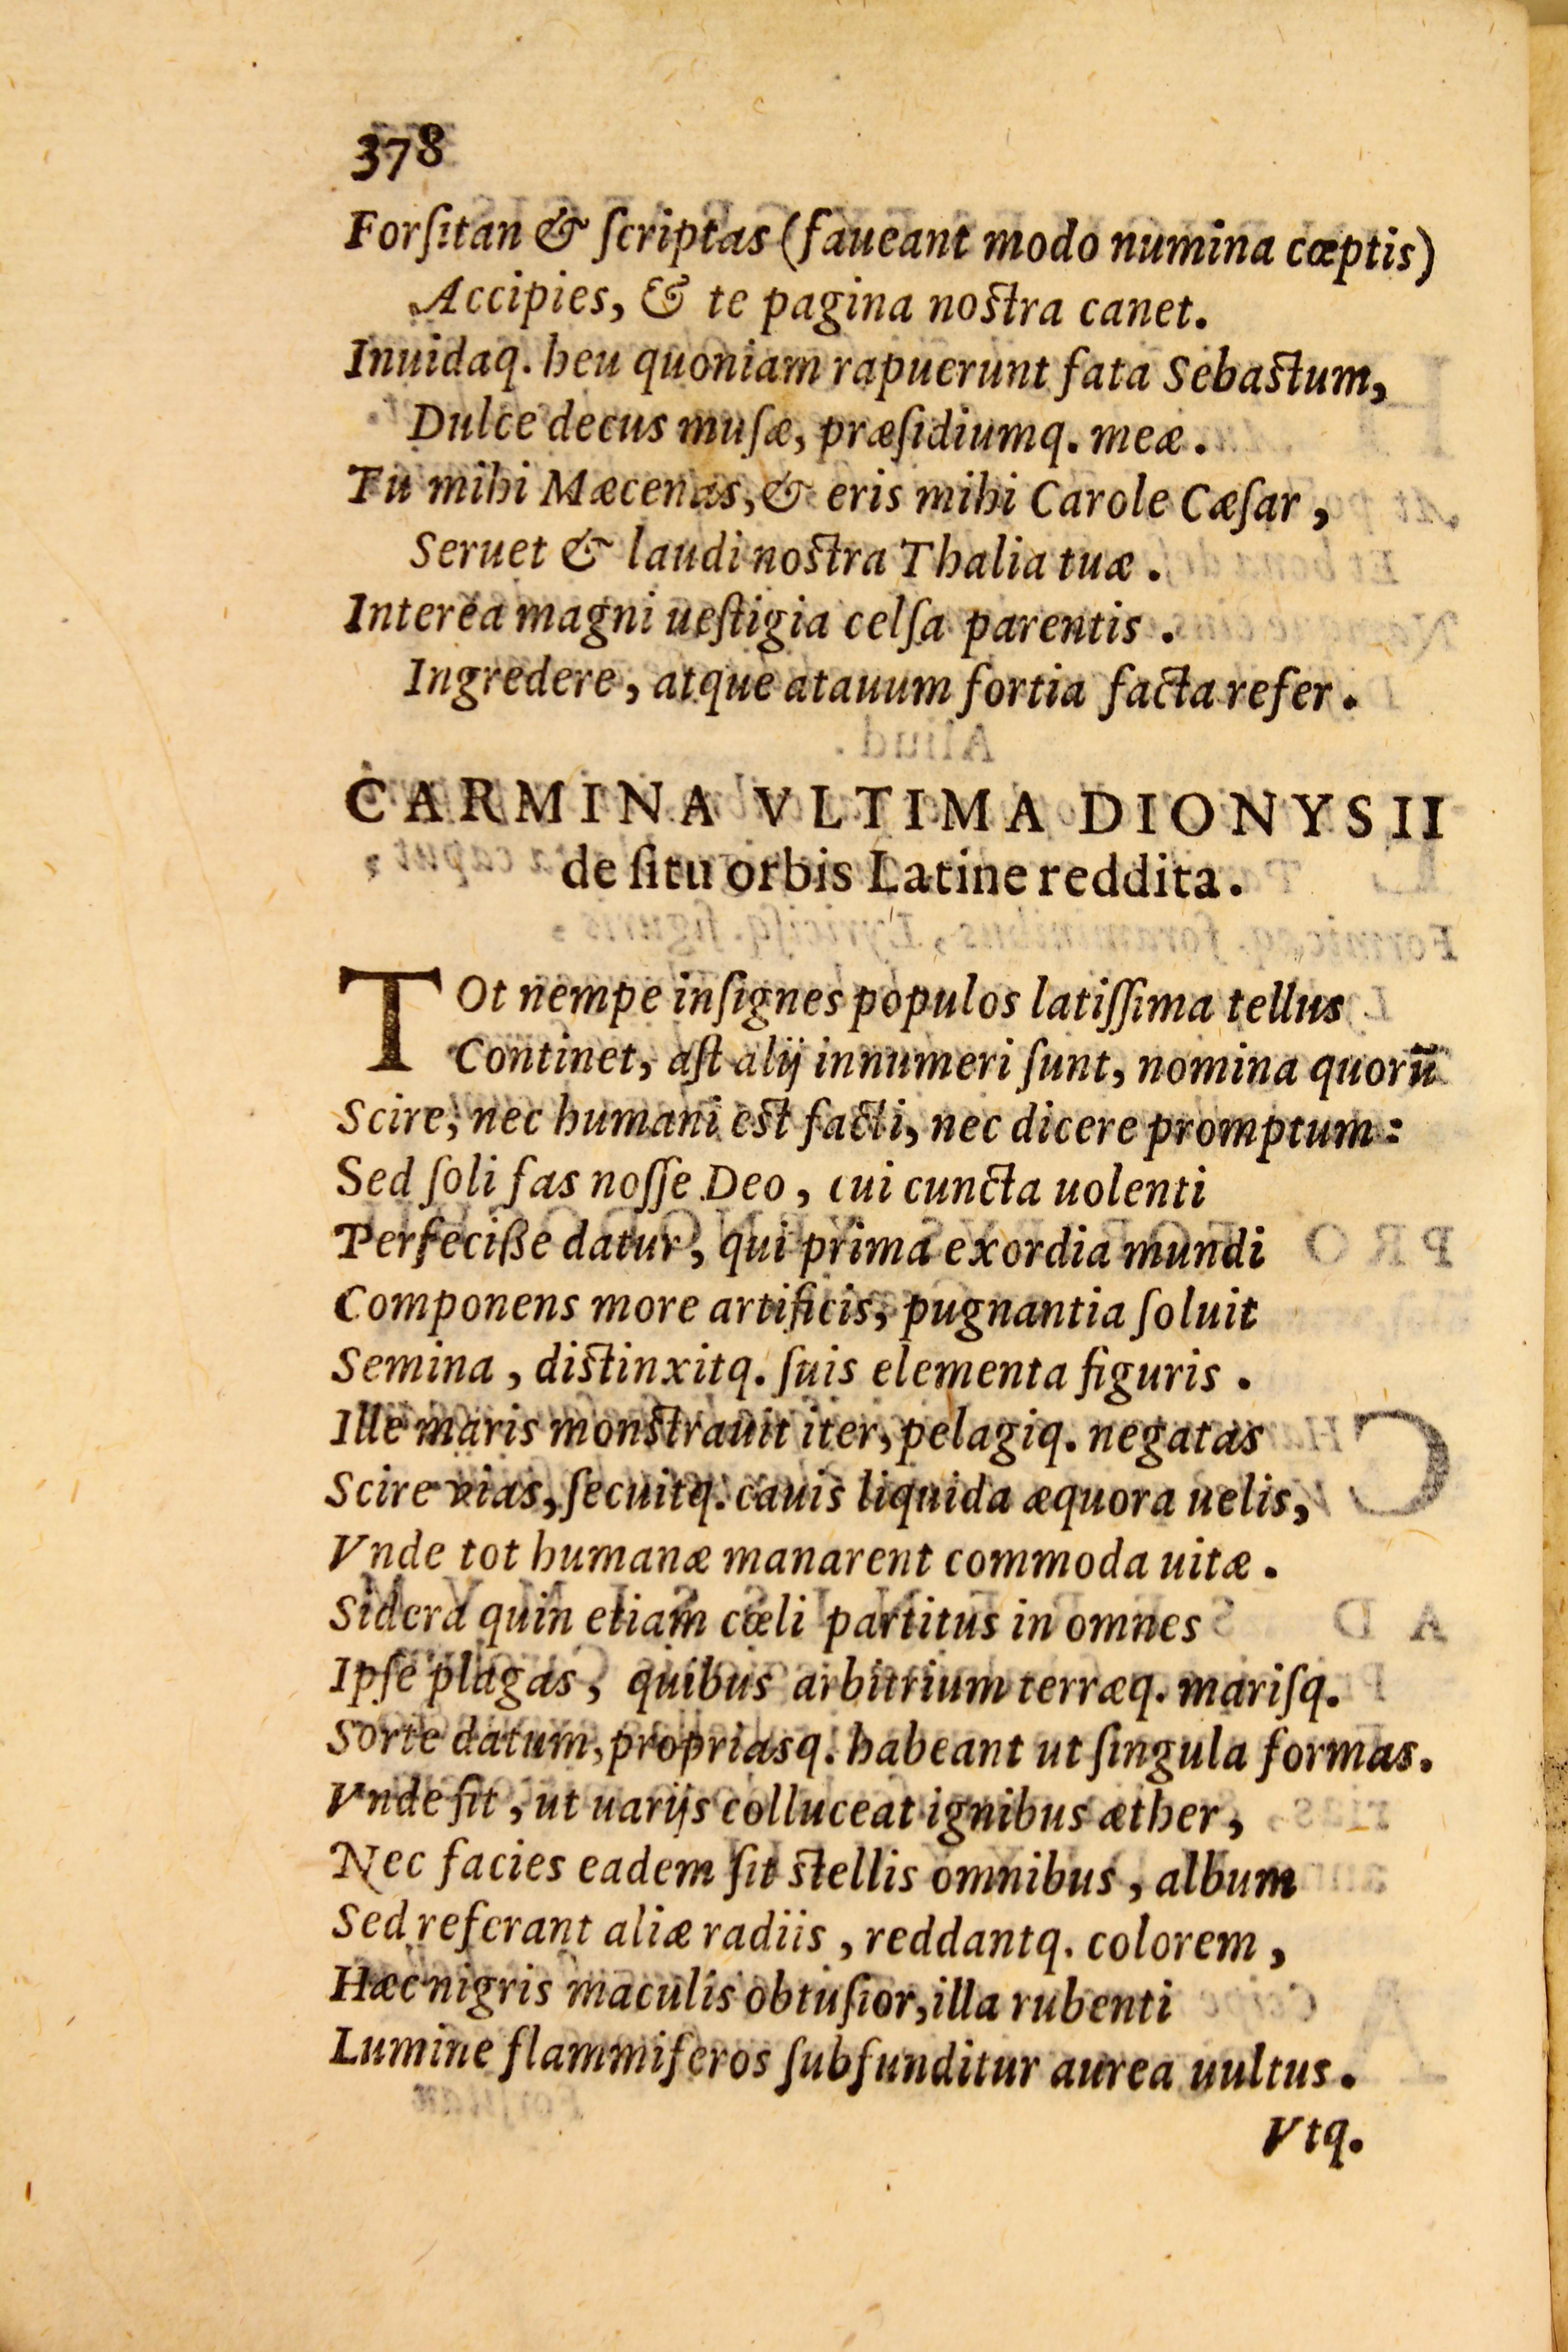 378
Forſitan & ſcriptas (faueant modo numina cœptis)
Accipies, & te pagina noſtra canet.
Inuidaq. heu quoniam rapuerunt fata Sebaſtum,
Dulce decus muſæ, præſidiumq. meæ.
Tu mihi Mæcenas, & eris mihi Carole Cæſar,
Seruet & laudi noſtra Thalia tuæ.
Interea magni ueſtigia celſa parentis.
Ingredere, atque atauum fortia facta refer.
CARMINA VLTIMA DIONYSII
de ſitu orbis Latine reddita.
TOt nempe inſignes populos latiſſima tellus
Continet, aſt alij innumeri ſunt, nomina quorū
Scire, nec humani eſt facti, nec dicere promptum:
Sed ſoli fas noſſe Deo, cui cuncta uolenti
Perfeciße datur, qui prima exordia mundi
Componens more artificis, pugnantia ſoluit
Semina, diſtinxitq. ſuis elementa figuris.
Ille maris monſtrauit iter, pelagiq. negatas
Scire vias, ſecuitq. cauis liquida æquora uelis,
Vnde tot humanæ manarent commoda uitæ.
Sidera quin etiam cœli partitus in omnes
Ipſe plagas, quibus arbitrium terræq. mariſq.
Sorte datum, propriasq. habeant ut ſingula formas.
Vnde fit, ut uarijs colluceat ignibus æther,
Nec facies eadem ſit ſtellis omnibus, album
Sed referant aliæ radiis, reddantq. colorem,
Hæc nigris maculis obtuſior, illa rubenti
Lumine flammiferos ſubfunditur aurea uultus.
Vtq.